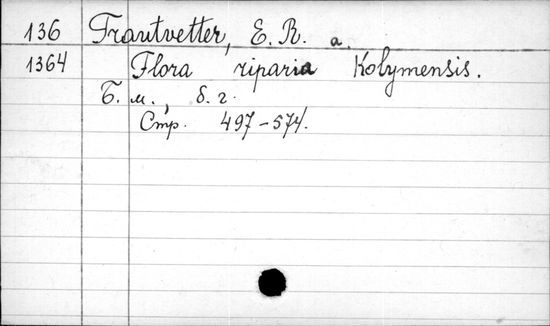 136 Trautvetter, E. R. a.
1364 Flora riparia Kolymensis.
Б. м., б. г.
Стр. 497-574.